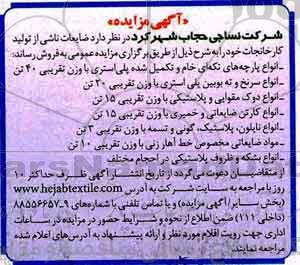 «آگهی مزایده»
شرکت نساجی حجاب شهرکرد در نظر دارد ضایعات ناشی از تولید
کارخانجات خود را به شرح ذیل از طریق برگزاری مزایده عمومی به فروش رساند:
-انواع پارچه‌های تکه‌ای خام و تکمیل شده پلی‌استری با وزن تقریبی ۴۰ تن
-انواع سرنخ و ته بوبین پلی استری با وزن تقریبی ۲۰ تن
-انواع دوک مقوایی و پلاستیکی با وزن تقریبی ۱۵ تن
-انواع کارتن ضایعاتی و خمیری با وزن تقریبی ۱۵ تن
-انواع نایلون، پلاستیک، گونی و تسمه با وزن تقریبی ۳ تن
-مواد ضایعاتی مخصوص خط آهار زنی با وزن تقریبی ۱۰ تن
-انواع بشکه و ظروف پلاستیکی در احجام مختلف
از متقاضیان دعوت می‌گردد از تاریخ انتشار آگهی ظرف حداکثر ۱۰
روز با مراجعه به سایت شرکت به آدرس www.hejabtextile.com
(بخش سایر/ آگهی مزایده) و یا تماس تلفنی با شماره‌های ۹-۸۸۵۵۶۶۵۷
(داخلی ۱۱۱) ضمن اطلاع از نحوه و شرایط حضور در مزایده در ساعات
اداری جهت رویت اقلام مورد نظر و ارائه پیشنهاد به آدرس‌های اعلام شده
مراجعه نمایند.